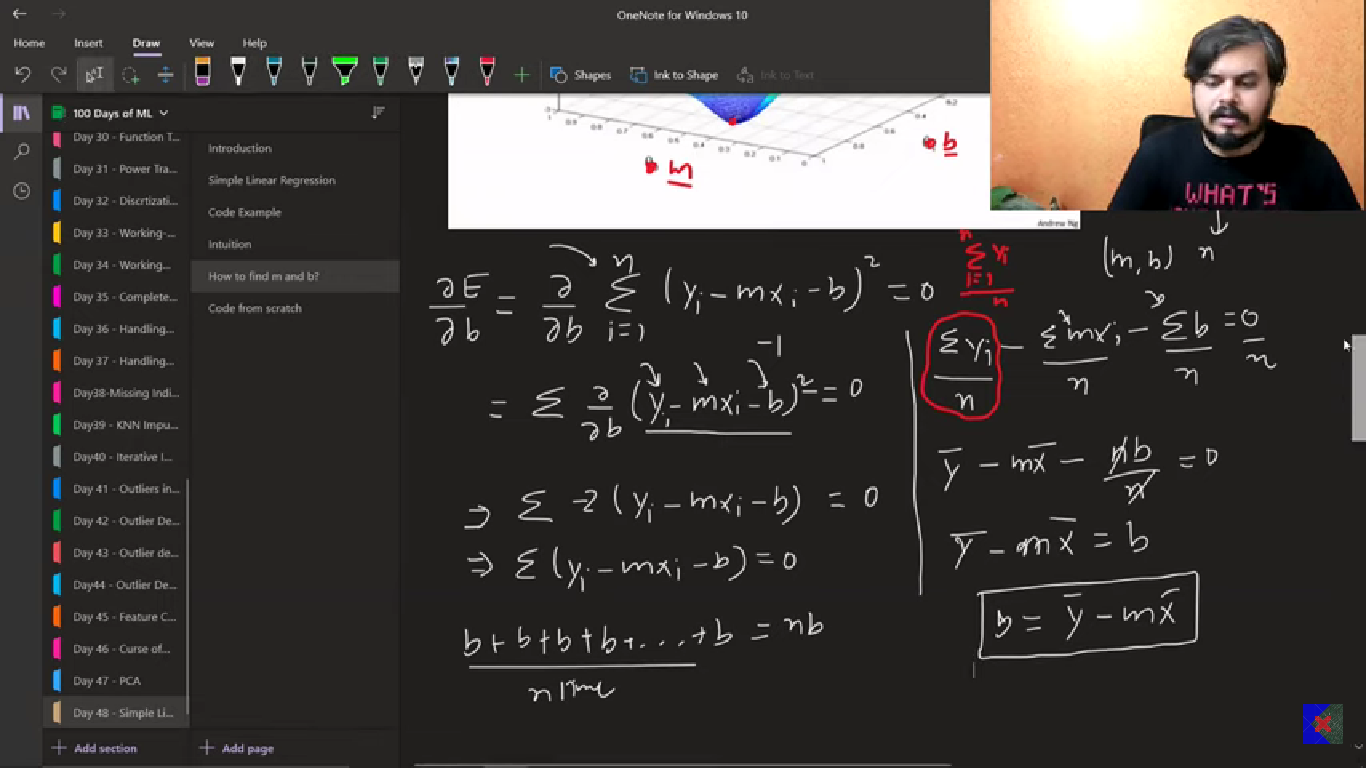 OneNote for Windows 10
Home Insert Draw View Help
Shapes Ink to Shape Ink to Text
100 Days of ML
Day 30 - Function T...
Day 31 - Power Tra...
Day 32 - Discrtizati...
Day 33 - Working-...
Day 34 - Working...
Day 35 - Complete...
Day 36 - Handling...
Day 37 - Handling...
Day38-Missing Indi...
Day39 - KNN Impu...
Day40 - Iterative I...
Day 41 - Outliers in...
Day 42 - Outlier De...
Day 43 - Outlier de...
Day44 - Outlier De...
Day 45 - Feature C...
Day 46 - Curse of...
Day 47 - PCA
Day 48 - Simple Li...
Add section
Introduction
Simple Linear Regression
Code Example
Intuition
How to find m and b?
Code from scratch
Add page
m
b
Andrew Ng
WHAT'S
(m, b) n
∂E/∂b = ∂/∂b Σ_{i=1}^{n} (yᵢ - mxᵢ - b)² = 0
-1
= Σ ∂/∂b (yᵢ - mxᵢ - b)² = 0
⇒ Σ -2 (yᵢ - mxᵢ - b) = 0
⇒ Σ (yᵢ - mxᵢ - b) = 0
b + b + b + b + .... + b = nb
n time
Σ_{i=1}^{n} yᵢ / n
Σyᵢ/n - Σmxᵢ/n - Σb/n = 0/n
ȳ - mx̄ - nb/n = 0
ȳ - mx̄ = b
b = ȳ - mx̄